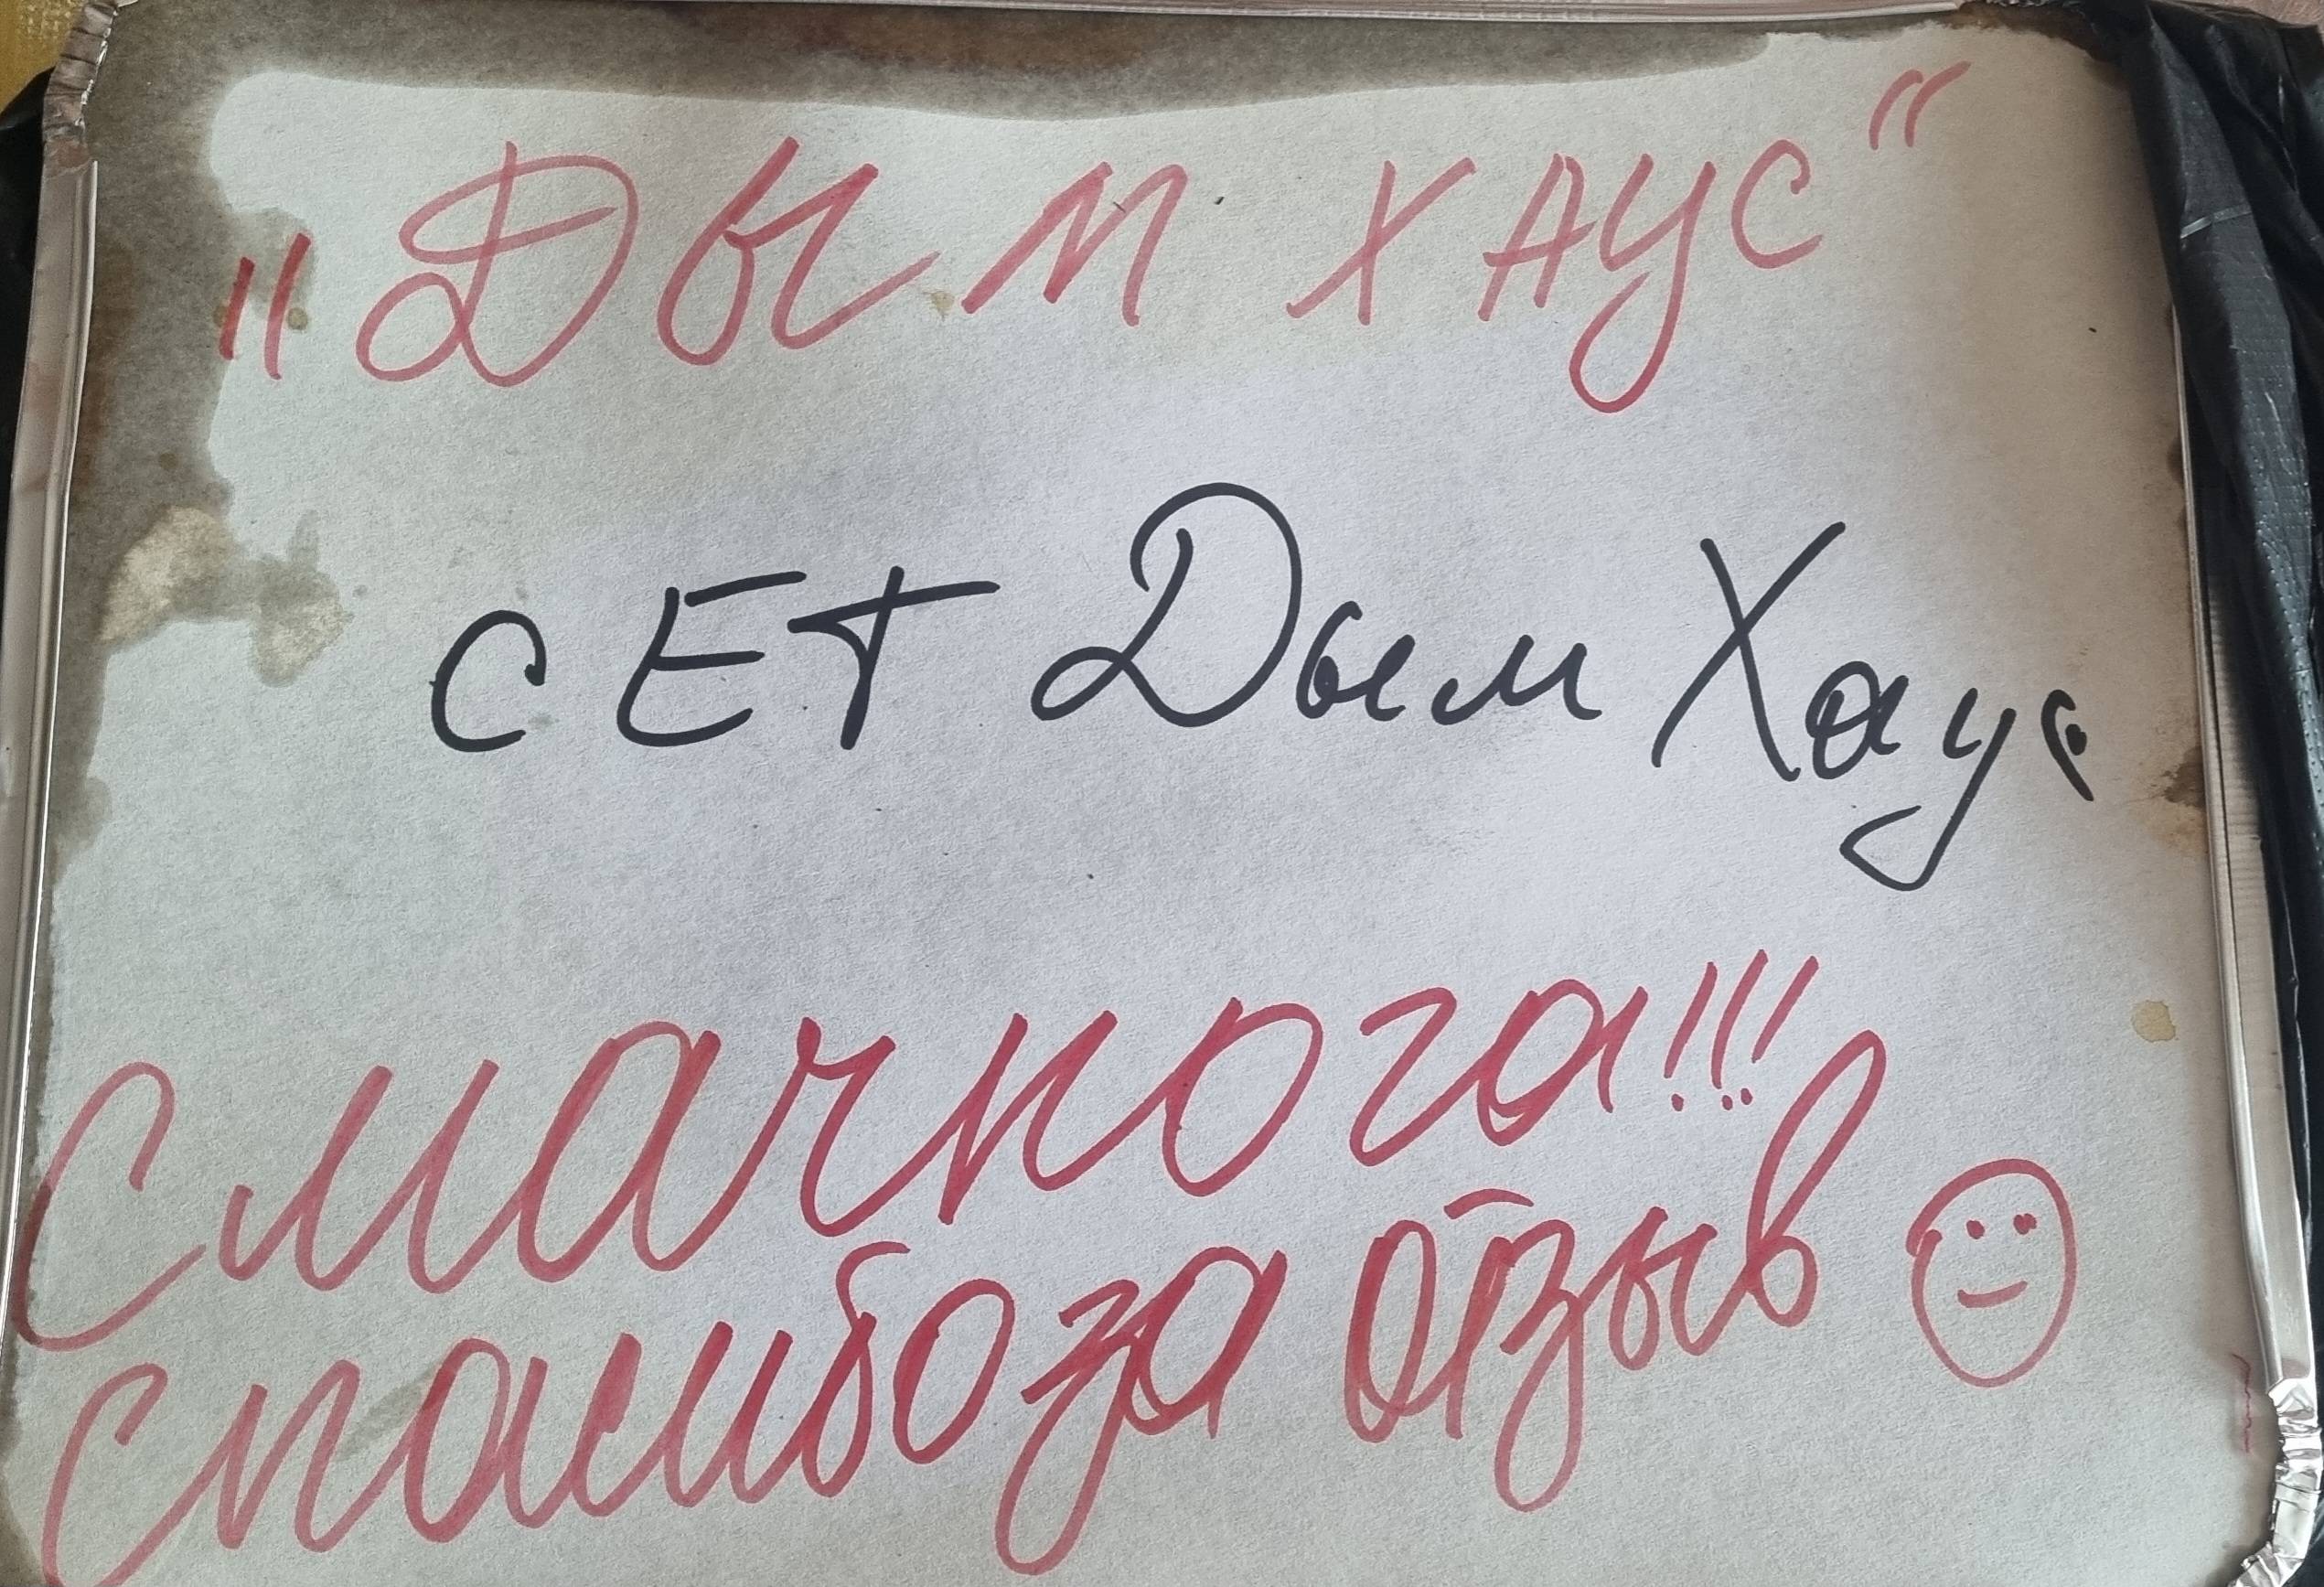 "ДЫМ ХАУС"
СЕТ Дым Хаус
Смачнога!!!
спасибо за отзыв